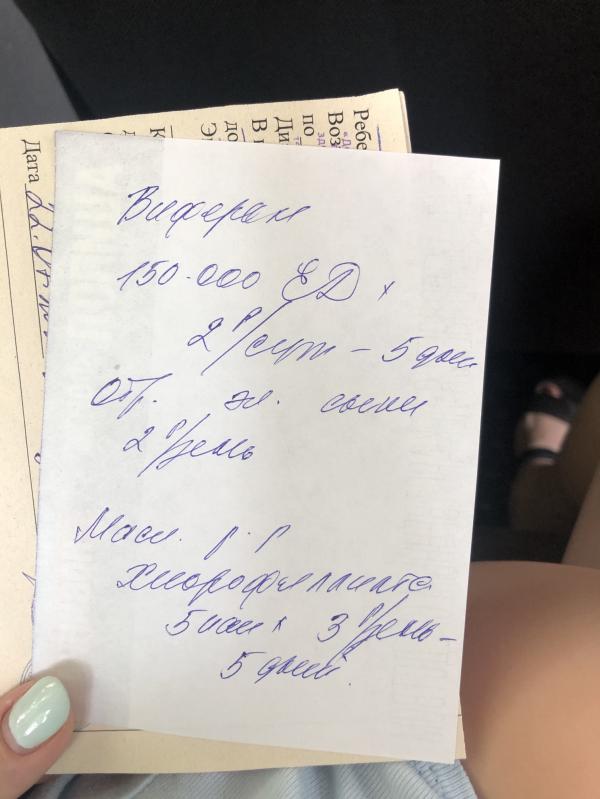 Виферон
150.000 ЕД x
2 р/сут – 5 дней
Отр.
2 р/день
Масл. р-р
Хлорофиллипта
5 кап x 3 р/день –
5 дней.
Ребе
Воз
по
Ди
В
до
Э
К
Дата 22.